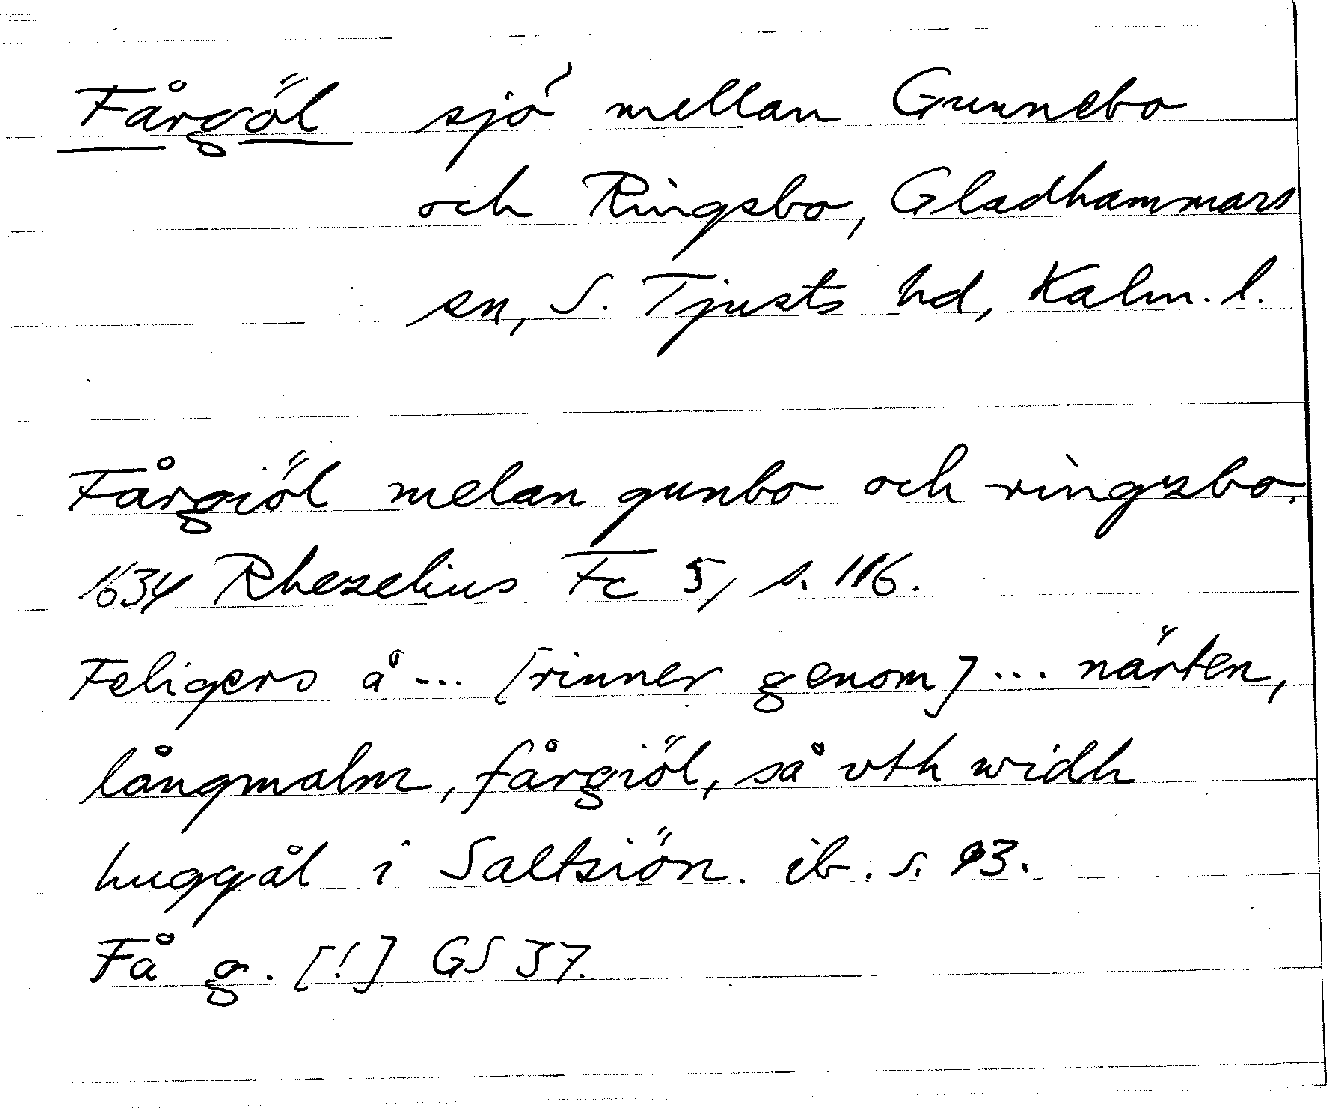 Fårgöl sjö mellan Gunnebo
och Ringsbo, Gladhammars
sn, S. Tjusts hd, Kalm. l.
Fårgiöl melan gunbo och ringzbo.
1634 Rhezelius Fc 5, s. 116.
Feligers å ... [rinner genom] ... närten,
långmalm, fårgiöl, så vth widh
huggål i Saltsiön. ib. s. 93.
Få g. [!] GS 37.